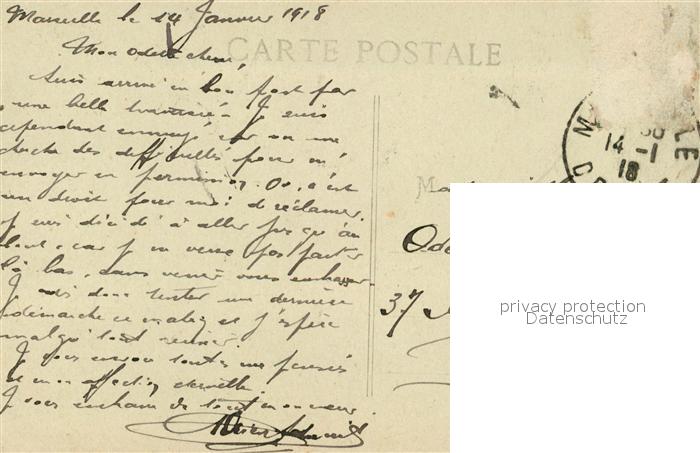 Marseille le 14 Janvier 1918
Mon Odette chérie
CARTE POSTALE
Suis arrivé à bon port par
une belle traversée. Je suis
cependant ennuyé, car on me
cherche des difficultés pour m'
envoyer en permission. Or, c'est
un droit pour moi de réclamer.
Je suis décidé à aller jusqu'au
bout, car je ne veux pas partir
là bas, sans venir vous embrasser.
Je vais donc tenter une dernière
démarche ce matin, et j'espère
malgré tout réussir.
Je vous envoie toutes mes pensées
et mon affection éternelle.
Je vous embrasse de tout mon cœur
M
LE
14 -1
18
Ode
37
privacy protection
Datenschutz